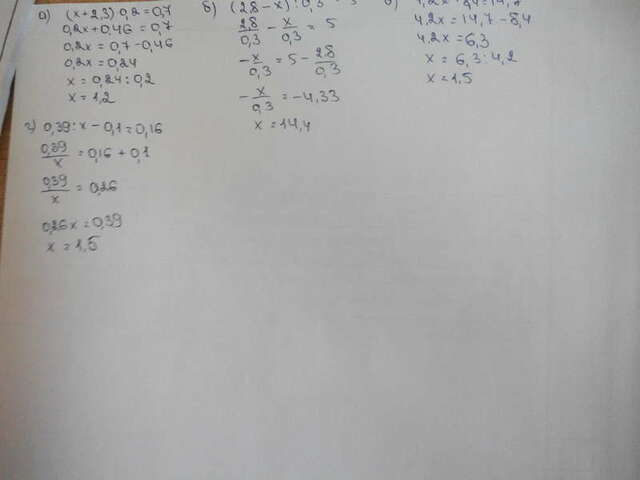 а) (x+2,3)·0,2=0,7
0,2x+0,46=0,7
0,2x=0,7-0,46
0,2x=0,24
x=0,24:0,2
x=1,2
б) (2,8-x):0,3=5
2,8/0,3 - x/0,3 = 5
-x/0,3 = 5 - 2,8/0,3
-x/0,3 = -4,33
x=14,4
4,2x+8,4=14,7
4,2x=14,7-8,4
4,2x=6,3
x=6,3:4,2
x=1,5
г) 0,39:x-0,1=0,16
0,39/x = 0,16+0,1
0,39/x = 0,26
0,26x=0,39
x=1,5